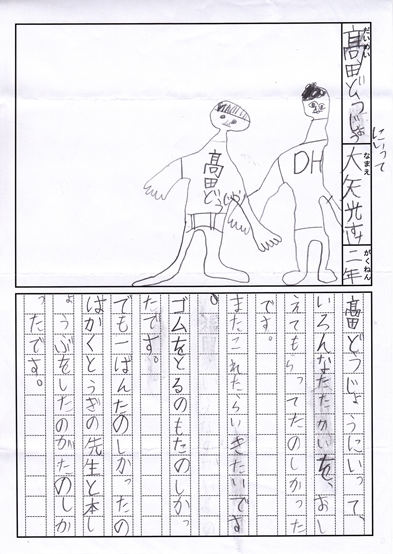 だいめい
髙田どうじょう
にいって
なまえ
大矢
がくねん
二年
髙田どうじょう
DH
髙田どうじょうにいって、
いろんなたたかいを、おし
えてもらってたのしかった
です。
またこれたらいきたいです
。
ゴムをとるのもたのしかっ
たです。
でも一ばんたのしかったの
はかくとうぎの先生と本し
ょうぶをしたのがたのしか
ったです。